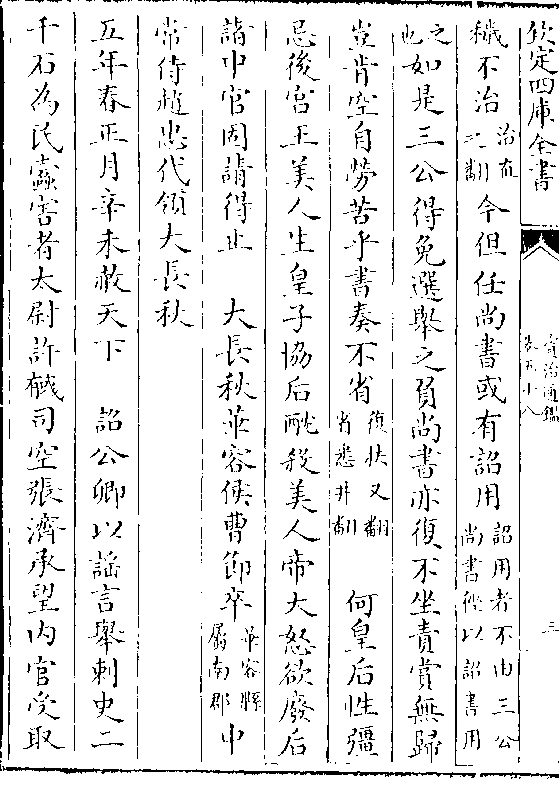 欽定四庫全書
資治通鑑
卷五十八
三
穢不治治直之翻今但任尚書或有詔用詔用者不由三公尚書徑以詔書用
之也如是三公得免選舉之負尚書亦復不坐責賞無歸
豈肯空自勞苦乎書奏不省復扶又翻省悉井翻 何皇后性彊
忌後宫王美人生皇子協后酖殺美人帝大怒欲廢后
諸中官固請得止 大長秋華容侯曹節卒華容縣屬南郡中
常侍趙忠代領大長秋
五年春正月辛未赦天下 詔公卿以謡言舉刺史二
千石為民蠧害者太尉許䤋司空張濟承望内官受取